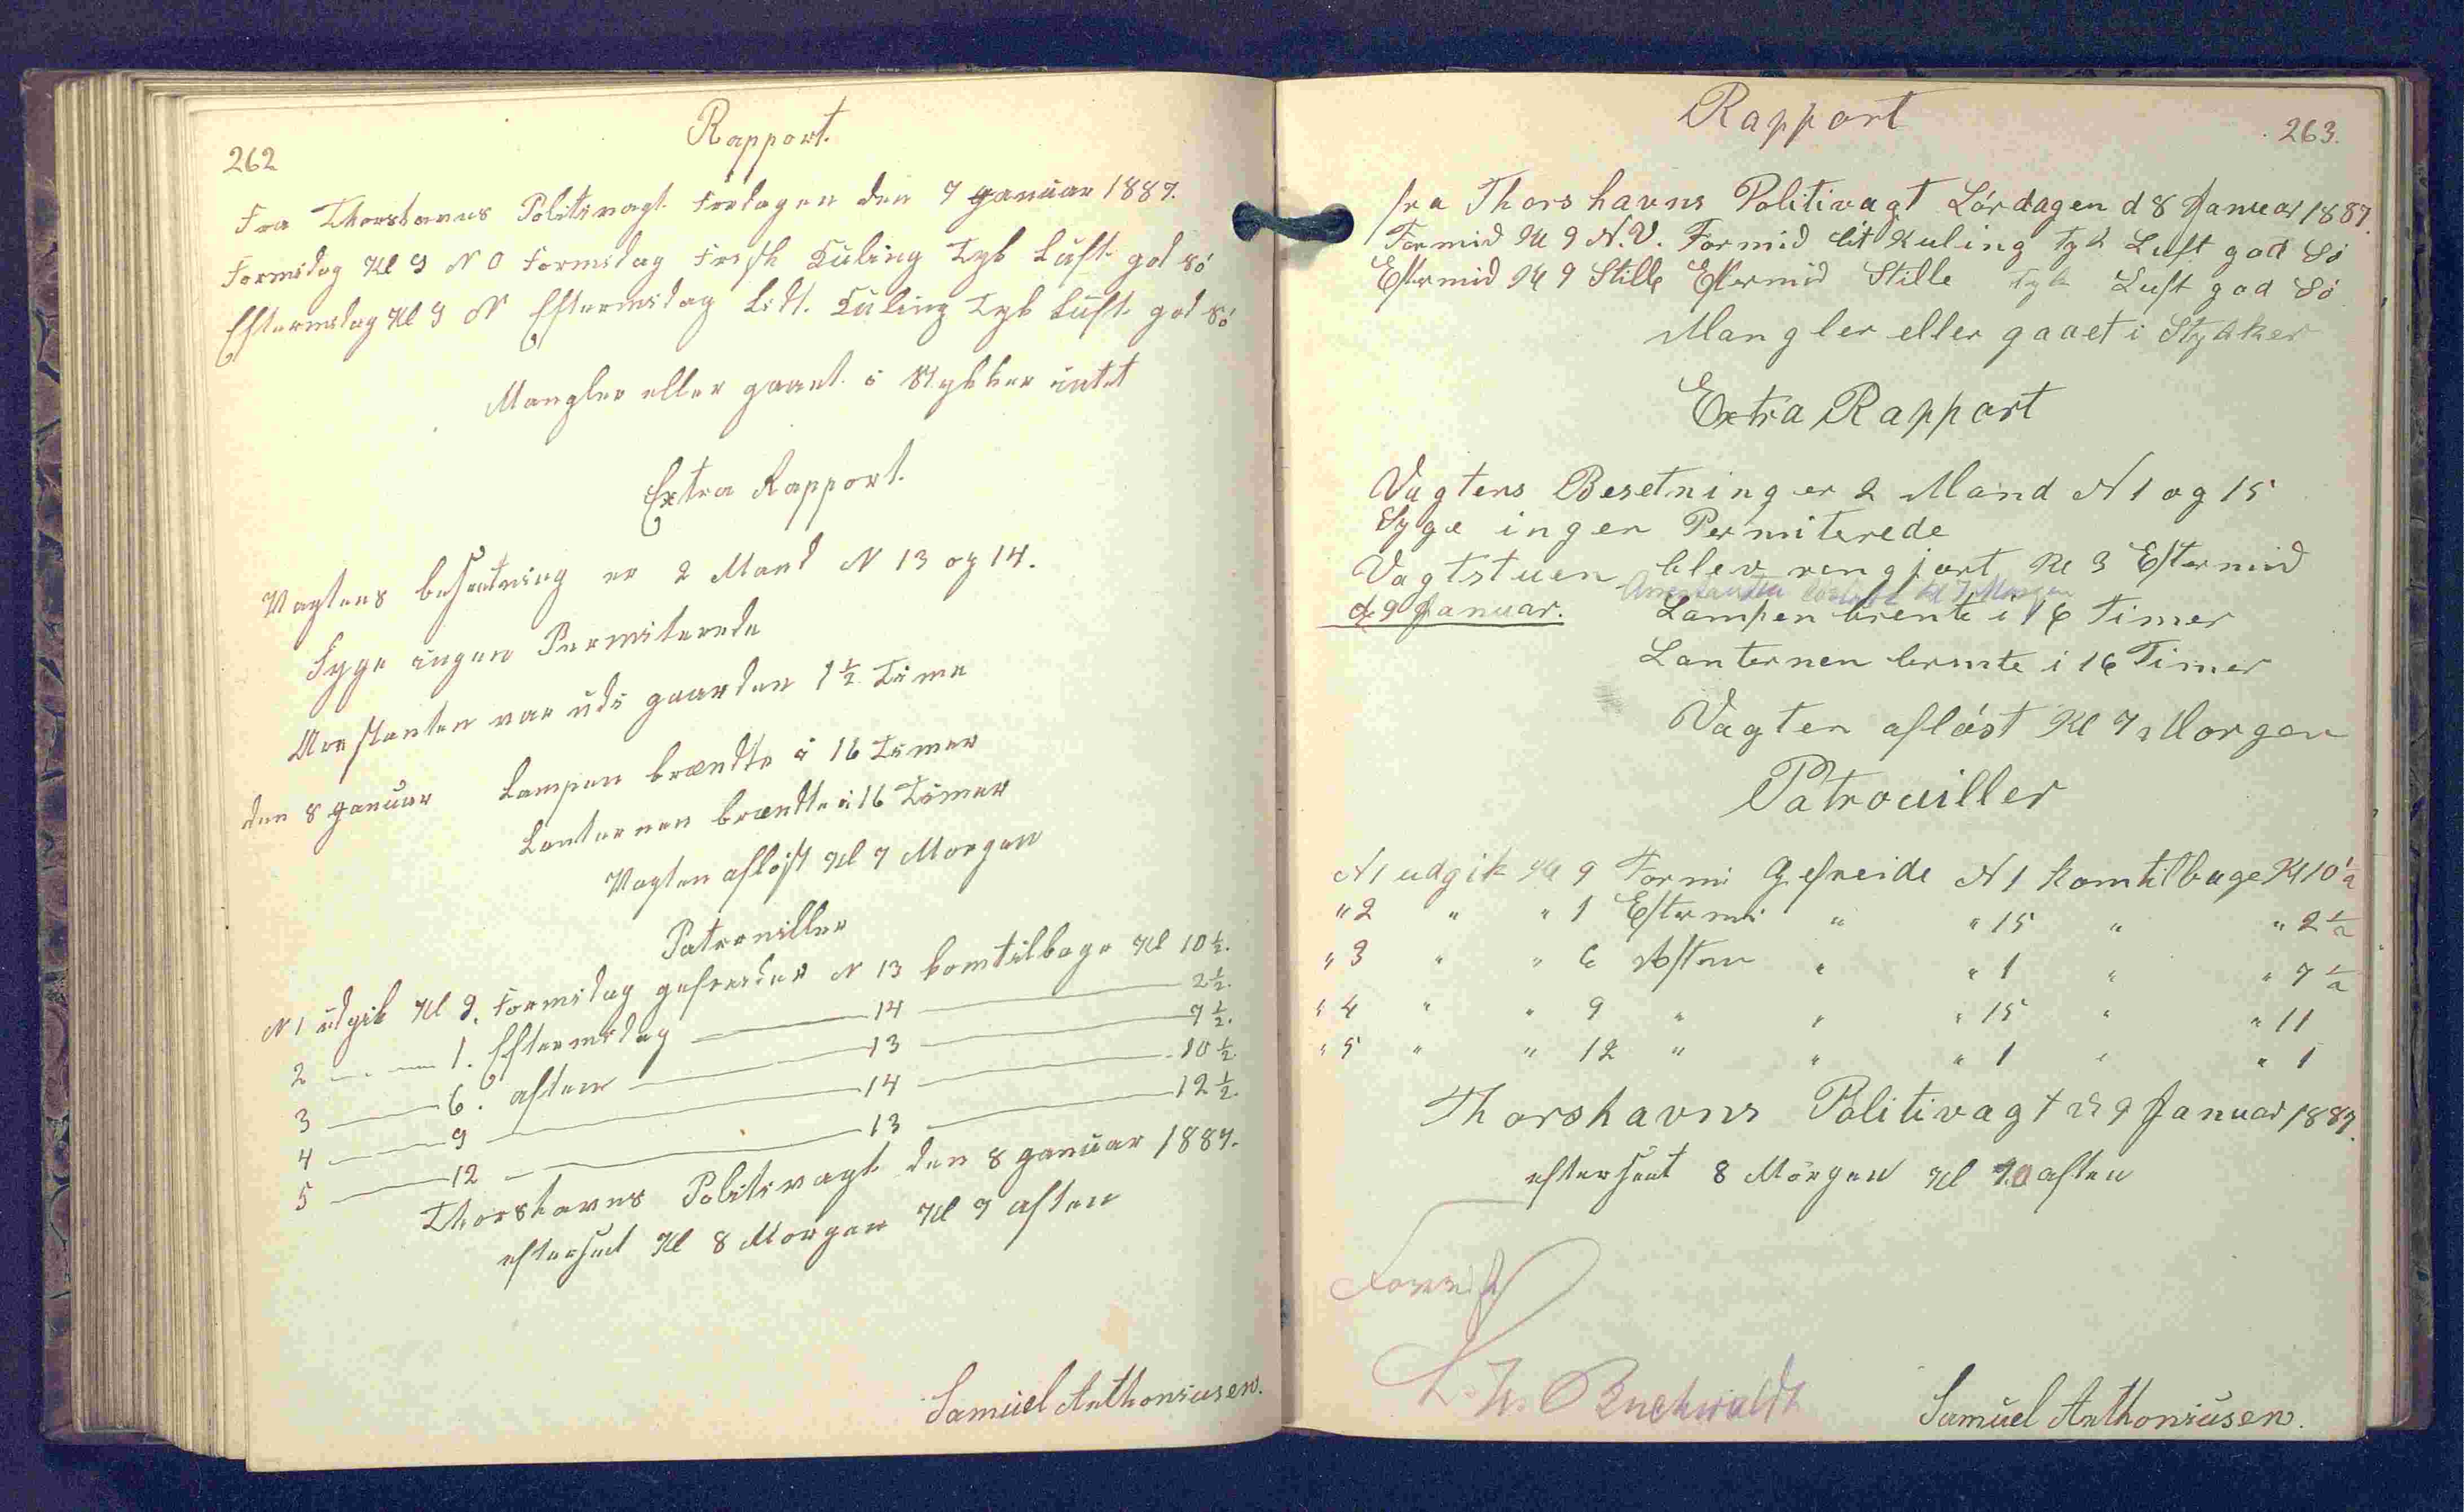 262
Rapport.
Fra Thorshavns Politivagt Fredagen den 7 Januar 1887.
Formidag Kl 9 N O Formidag Frisk Kuling Tyk Luft god Sö
Eftermidag Kl 9 N Eftermidag Lidt. Kuling Tyk Luft god Sö
Mangler eller gaaet i Stykker intet
Extra Rapport.
Vagtens besætning er 2 Mand N 13 og 14.
Syge ingen Permiterede
Arestanten var udi gaarden 1 1/2 Time
den 8 Januar Lampen brændte i 16 Timer
Lanternen brændte i 16 Timer
Vagten aflöst Kl 7 Morgen
Patrouiller
N 1 udgik Kl 9. Formidag gefreider N 13 komtilbage Kl 10 1/2.
2 — — 1. Eftermidag — 14 — 2 1/2.
3 — 6. aften — 13 — 7 1/2.
4 — 9 — 14 — 10 1/2
5 — 12 — 13 — 12 1/2.
Thorshavns Politivagt den 8 Januar 1887.
efterseet Kl 8 Morgen Kl 9 aften
Samuel Anthoniusen.
Rapport
263.
fra Thorshavns Politivagt Lördagen d 8 Januar 1887.
Formid Kl 9 N.V. Formid lit Kuling tyk Luft god Sö
Eftermid Kl 9 Stille Eftermid Stille tyk Luft god Sö
Mangler eller gaaet i Stykker
Extra Rapport
Vagtens Besetning er 2 Mand N 1 og 15
Syge ingen Permiterede
Vagtstuen blev rengjort Kl 3 Eftermid
Kl 7 Morgen
d. 9 Januar. Lampen brente i 16 Timer
Lanternen brente i 16 Timer
Vagten aflöst Kl 7 Morgen
Patrouiller
N 1 udgik Kl 9 Formi Gefreide N 1 komtilbage Kl 10 1/2
" 2 " " 1 Eftermi " " 15 " " 2 1/2
" 3 " " 6 Aften " " 1 " " 7 1/2
" 4 " " 9 " " " 15 " " 11
" 5 " " 12 " " " 1 " " 1
Thorshavns Politivagt d 9 Januar 1887.
efterseet 8 Morgen Kl 10 aften
Buchwaldt
Samuel Anthoniusen.